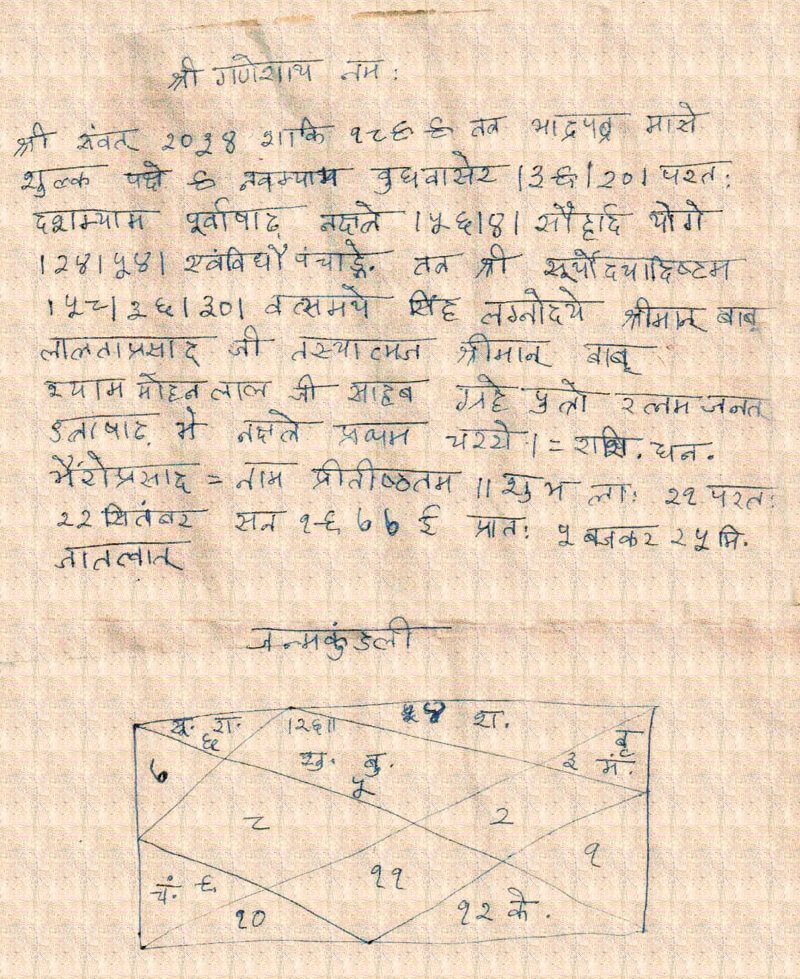 श्री गणेशाय नमः
श्री संवत् २०३४ शाके १८९९ तत्र भाद्रपद मासे
शुल्क पक्षे ९ नवम्याम बुधवासेर ।३९।२०। परतः
दशम्याम पूर्वाषाढ़ नक्षत्रे ।५६।४। सौहार्द योगे
।२४।५४। एवंविधौ पंचाङ्गे. तत्र श्री सूर्योदयादिष्टम
।५८।३६।३०। वत्समये सिंह लग्नोदये श्रीमान् बाबू
लालताप्रसाद् जी तस्यात्मज श्रीमान् बाबू
श्याम मोहन लाल जी साहब ग्रहे पुत्रो रत्नम जनत
उत्राषाढ़ मे नक्षत्रे प्रथम चरणे। = राशि. धन.
भैरोप्रसाद् = नाम प्रीतीष्ठतम ॥ शुभ ताः २१ परतः
२२ सितंबर सन १९७७ ई प्रातः ५ बजकर २५ मि.
जातत्वात्
जन्मकुंडली
सू. रा. ६
।२६॥
शु. बु. ५
४ श.
बृ मं. ३
७
८
२
१
चं. ९
१०
११
१२ के.